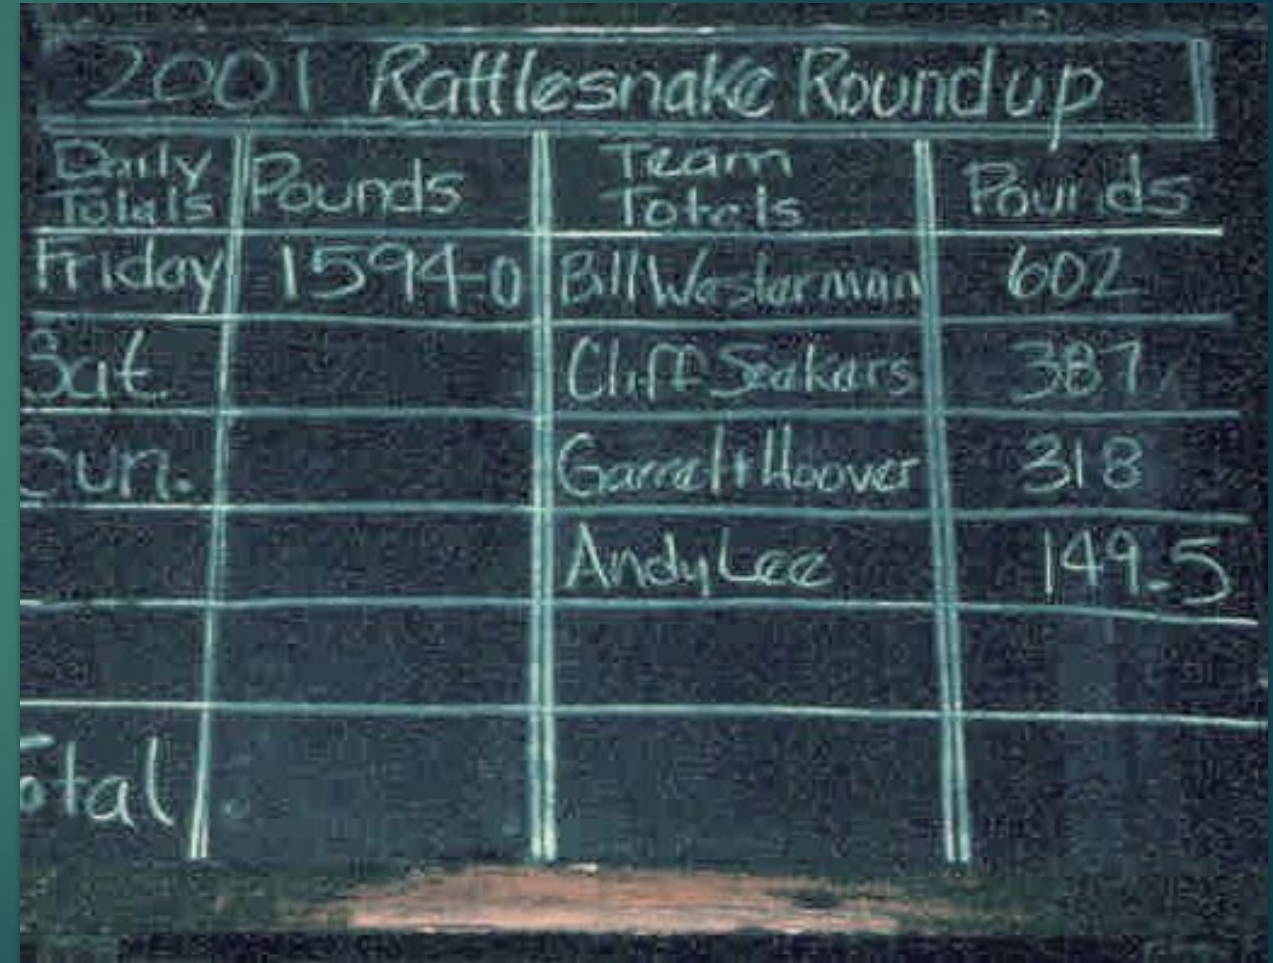 2001 Rattlesnake Roundup
Daily Totals | Pounds | Team Totals | Pounds
Friday | 1594-0 | Bill Westerman | 602
Sat. | | Cliff Seakars | 387
Sun. | | Garrett Hoover | 318
| | Andy Lee | 149.5
Total